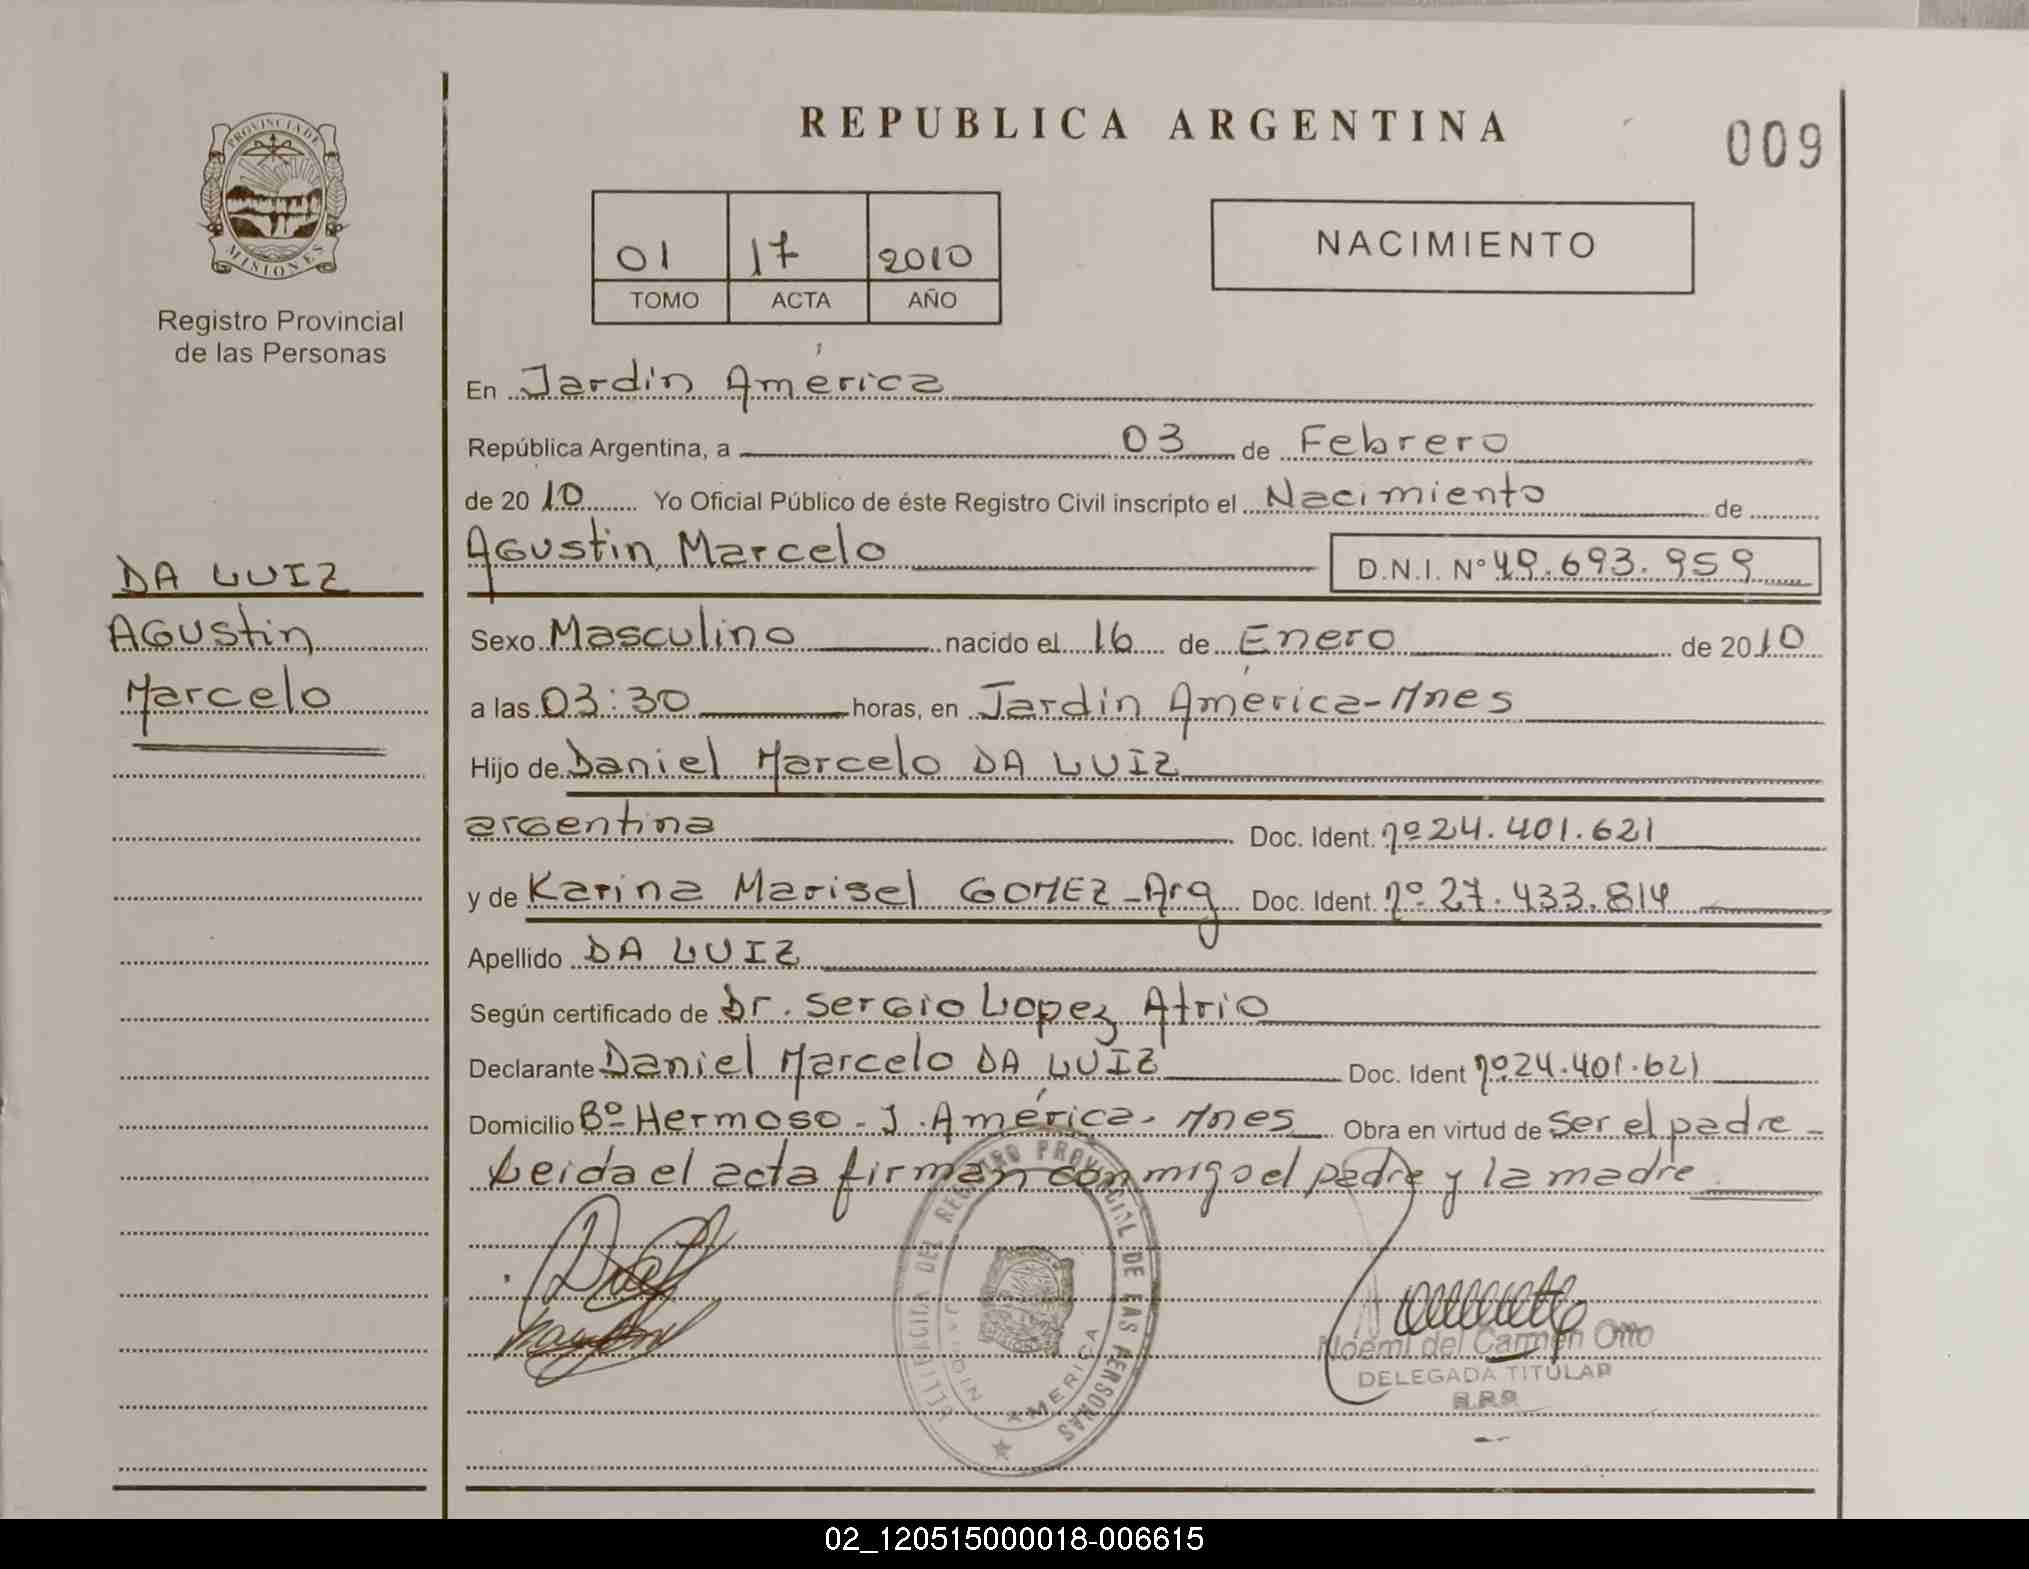 REPUBLICA ARGENTINA
009
PROVINCIA DE
MISIONES
Registro Provincial
de las Personas
01 17 2010
TOMO ACTA AÑO
NACIMIENTO
En Jardín América
República Argentina, a 03 de Febrero
de 2010 Yo Oficial Público de éste Registro Civil inscripto el Nacimiento de
Agustin Marcelo D.N.I. Nº 49.693.959
DA LUIZ
Agustin
Marcelo
Sexo Masculino nacido el 16 de Enero de 2010
a las 03:30 horas, en Jardin América-Mnes
Hijo de Daniel Marcelo DA LUIZ
argentina Doc. Ident. nº 24.401.621
y de Karina Marisel GOMEZ-Arg Doc. Ident. nº 27.433.814
Apellido DA LUIZ
Según certificado de Dr. Sergio Lopez Atrio
Declarante Daniel Marcelo DA LUIZ Doc. Ident nº 24.401.621
Domicilio Bº Hermoso - J. América - Mnes Obra en virtud de ser el padre -
Leida el acta firman conmigo el padre y la madre
REGISTRO PROVINCIAL DE LAS PERSONAS
JARDIN AMERICA
Noemi del Carmen Otto
DELEGADA TITULAR
R.P.P.
02_120515000018-006615